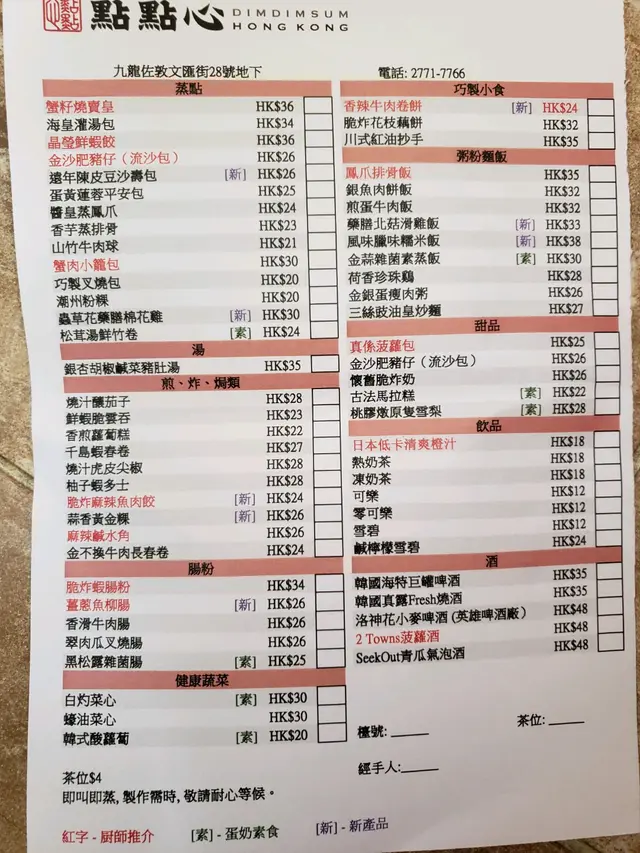 點點心 DIMDIMSUM
HONG KONG
九龍佐敦文匯街28號地下 電話: 2771-7766
蒸點
蟹籽燒賣皇 HK$36
海皇灌湯包 HK$34
晶瑩鮮蝦餃 HK$36
金沙肥豬仔（流沙包） HK$26
遠年陳皮豆沙壽包 [新] HK$26
蛋黃蓮蓉平安包 HK$25
醬皇蒸鳳爪 HK$24
香芋蒸排骨 HK$23
山竹牛肉球 HK$21
蟹肉小籠包 HK$30
巧製叉燒包 HK$20
潮州粉粿 HK$20
蟲草花藥膳棉花雞 [新] HK$30
松茸湯鮮竹卷 [素] HK$24
湯
銀杏胡椒鹹菜豬肚湯 HK$35
煎、炸、焗類
燒汁釀茄子 HK$28
鮮蝦脆雲吞 HK$23
香煎蘿蔔糕 HK$22
千島蝦春卷 HK$27
燒汁虎皮尖椒 HK$28
柚子蝦多士 HK$28
脆炸麻辣魚肉餃 [新] HK$24
蒜香黃金粿 [新] HK$26
麻辣鹹水角 HK$26
金不換牛肉長春卷 HK$24
腸粉
脆炸蝦腸粉 HK$34
薑蔥魚柳腸 [新] HK$26
香滑牛肉腸 HK$26
翠肉瓜叉燒腸 HK$26
黑松露雜菌腸 [素] HK$25
健康蔬菜
白灼菜心 [素] HK$30
蠔油菜心 HK$30
韓式酸蘿蔔 [素] HK$20
茶位$4
即叫即蒸, 製作需時, 敬請耐心等候。
紅字 - 厨師推介 [素] - 蛋奶素食 [新] - 新產品
巧製小食
香辣牛肉卷餅 [新] HK$24
脆炸花枝藕餅 HK$32
川式紅油抄手 HK$35
粥粉麵飯
鳳爪排骨飯 HK$35
銀魚肉餅飯 HK$32
煎蛋牛肉飯 HK$32
藥膳北菇滑雞飯 [新] HK$33
風味臘味糯米飯 [新] HK$38
金蒜雜菌素蒸飯 [素] HK$30
荷香珍珠鷄 HK$28
金銀蛋瘦肉粥 HK$26
三絲豉油皇炒麵 HK$27
甜品
真係菠蘿包 HK$25
金沙肥豬仔（流沙包） HK$26
懷舊脆炸奶 HK$26
古法馬拉糕 [素] HK$22
桃膠燉原隻雪梨 [素] HK$28
飲品
日本低卡清爽橙汁 HK$18
熱奶茶 HK$18
凍奶茶 HK$18
可樂 HK$12
零可樂 HK$12
雪碧 HK$12
鹹檸檬雪碧 HK$24
酒
韓國海特巨罐啤酒 HK$35
韓國真露Fresh燒酒 HK$35
洛神花小麥啤酒 (英雄啤酒廠) HK$48
2 Towns菠蘿酒 HK$48
SeekOut青瓜氣泡酒 HK$48
檯號: 茶位:
經手人: